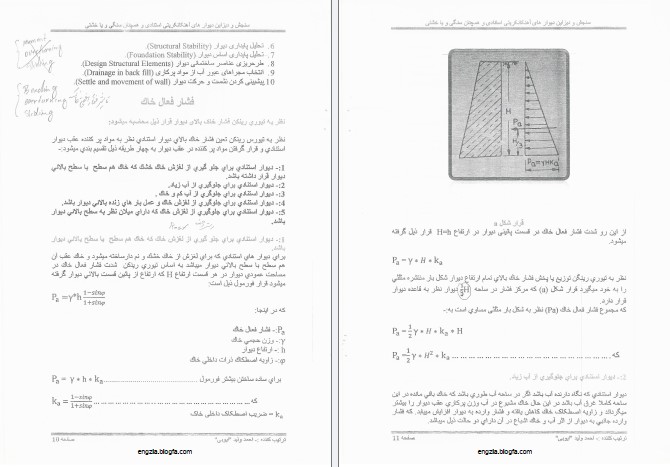 سنجش و دیزاین دیوار های آهنکانکریتی استنادی و همچنان سنگی و یا خشتی
6. تحلیل پایداری دیوار (Structural Stability)
7. تحلیل پایداری اساس دیوار (Foundation Stability)
8. طرحریزی عناصر ساختمانی دیوار (Design Structural Elements)
9. انتخاب مجراهای عبور آب از مواد پرکاری (Drainage in back fill)
10. پیشبینی کردن نشست و حرکت دیوار (Settle and movement of wall)
فشار فعال خاک
نظر به تیوری رینکن فشار خاک بالای دیوار قرار ذیل محاسبه میشود:
نظر به تیورس رینکن تعین فشار خاک بالای دیوار استنادی نظر به مواد پر کننده عقب دیوار
استنادی و قرار گرفتن مواد پر کننده در عقب دیوار به چهار طریقه ذیل تقسیم بندی میشود:-
1:- دیوار استنادی برای جلو گیری از لغزش خاک خشک که خاک هم سطح با سطح بالائی
دیوار قرار داشته باشد.
2:- دیوار استنادی برای جلوگیری از آب زیاد.
3:- دیوار استنادی برای جلوگیری از آب کم و خاک .
4:- دیوار استنادی برای جلوگیری از لغزش خاک و عمل بار های زنده بالائی دیوار باشد.
5:- دیوار استنادی برای جلوگیری از لغزش خاک که دارای میلان نظر به سطح بالائی دیوار
باشد.
1:- دیوار استنادی برای جلو گیری از لغزش خاک که خاک هم سطح با سطح بالائی دیوار باشد
برای دیوار های استنادی که برای لغزش از خاک خشک و نم دارساخته میشود و خاک عقب آن
هم سطح با سطح بالائی دیوار میباشد به اساس تیوری رینکن شدت فشار فعال خاک در
مساحت عمودی دیوار در هر قسمت ارتفاع H که ارتفاع از پائین قسمت بالائی دیوار گرفته
میشود قرار فورمول ذیل است:
Pa =γ*h (1−sinφ)/(1+sinφ)
که در اینجا:
Pa:- فشار فعال خاک
γ:- وزن حجمی خاک
h :- ارتفاع دیوار
φ:- زاویه اصطکاک ذرات داخلی خاک
برای ساده ساختن بیشتر فورمول .......... Pa = γ * h * ka
که .......... ka = (1−sinφ)/(1+sinφ)
ka = ضریب اصطکاک داخلی خاک
ترتیب کننده :- احمد ولید "ایوبی" صفحه 10
engzia.blogfa.com
سنجش و دیزاین دیوار های آهنکانکریتی استنادی و همچنان سنگی و یا خشتی
H
Pa
H/3
Pa=γHKa
قرار شکل a
از این رو شدت فشار فعال خاک در قسمت پائینی دیوار در ارتفاع H=h قرار ذیل گرفته
میشود.
Pa = γ * H * ka
نظر به تیوری رینکن توزیع یا پخش فشار خاک بالای تمام ارتفاع دیوار شکل بار منتشره مثلثی
را به خود میگیرد قرار شکل (a) که مرکز فشار در ساحه دیوار نظر به قاعده دیوار
قرار دارد.
که مجموع فشار فعال خاک (Pa) نظر به شکل بار مثلثی مساوی است به:-
Pa = 1/2 γ * H * ka * H
Pa = 1/2 γ * H² * ka .......... که
2:- دیوار استنادی برای جلوگیری از آب زیاد.
دیوار استنادی که نگاه دارنده آب باشد اگر در ساحه آب طوری باشد که خاک باقی مانده در این
ساحه کاملا غرق آب باشد در این حال خاک مشبوع در آب وزن پرکاری عقب دیوار را بیشتر
میگرداند و زاویه اصطکاک خاک کاهش یافته و فشار وارده به دیوار افزایش میباید. که فشار
وارده جانبی به دیوار از اثر آب و خاک اشباع در آن دارای دو حالت ذیل میباشد.
ترتیب کننده :- احمد ولید "ایوبی" صفحه 11
engzia.blogfa.com